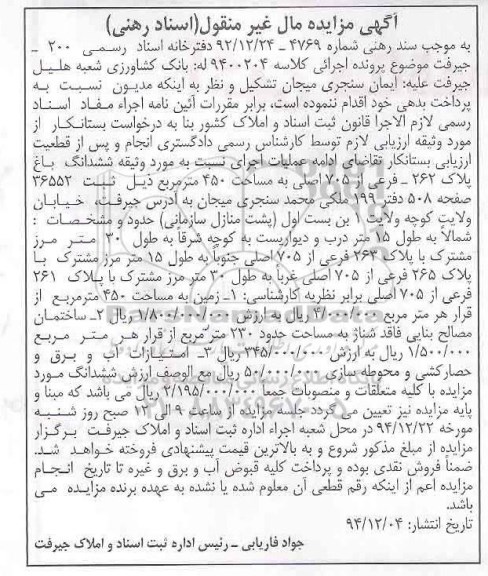 آگهی مزایده مال غیر منقول(اسناد رهنی)
به موجب سند رهنی شماره ۴۷۶۹ ـ ۹۲/۱۲/۲۴ دفترخانه اسناد رسمی ۲۰۰ ـ
جیرفت موضوع پرونده اجرائی کلاسه ۹۴۰۰۲۰۴ له: بانک کشاورزی شعبه هلیل
جیرفت علیه: ایمان سنجری میجان تشکیل و نظر به اینکه مدیون نسبت به
پرداخت بدهی خود اقدام ننموده است، برابر مقررات آئین نامه اجراء مفاد اسناد
رسمی لازم الاجرا قانون ثبت اسناد و املاک کشور بنا به درخواست بستانکار از
مورد وثیقه ارزیابی لازم توسط کارشناس رسمی دادگستری انجام و پس از قطعیت
ارزیابی بستانکار تقاضای ادامه عملیات اجرای نسبت به مورد وثیقه ششدانگ باغ
پلاک ۲۶۲ ـ فرعی از ۷۰۵ اصلی به مساحت ۴۵۰ مترمربع ذیل ثبت ۳۶۵۵۲
صفحه ۵۰۸ دفتر ۱۹۹ ملکی محمد سنجری میجان به آدرس جیرفت، خیابان
ولایت کوچه ولایت ۱ بن بست اول (پشت منازل سازمانی) حدود و مشخصات :
شمالاً به طول ۱۵ متر درب و دیواریست به کوچه شرقاً به طول ۳۰ متر مرز
مشترک با پلاک ۲۶۳ فرعی از ۷۰۵ اصلی جنوباً به طول ۱۵ متر مرز مشترک با
پلاک ۲۶۵ فرعی از ۷۰۵ اصلی غرباً به طول ۳۰ متر مرز مشترک با پلاک ۲۶۱
فرعی از ۷۰۵ اصلی برابر نظریه کارشناسی: ۱ـ زمین به مساحت ۴۵۰ مترمربع از
قرار هر متر مربع ۴/۰۰۰/۰۰۰ ریال به ارزش ۱/۸۰۰/۰۰۰/۰۰۰ ریال ۲ـ ساختمان
مصالح بنایی فاقد شناژ به مساحت حدود ۲۳۰ متر مربع از قرار هر متر مربع
۱/۵۰۰/۰۰۰ ریال به ارزش ۳۴۵/۰۰۰/۰۰۰ ریال ۳ـ امتیازات آب و برق و
حصارکشی و محوطه سازی ۵۰/۰۰۰/۰۰۰ ریال مع الوصف ارزش ششدانگ مورد
مزایده با کلیه متعلقات و منصوبات جمعاً ۲/۱۹۵/۰۰۰/۰۰۰ ریال می باشد که مبنا و
پایه مزایده نیز تعیین می گردد جلسه مزایده از ساعت ۹ الی ۱۲ صبح روز شنبه
مورخه ۹۴/۱۲/۲۲ در محل شعبه اجراء اداره ثبت اسناد و املاک جیرفت برگزار
مزایده از مبلغ مذکور شروع و به بالاترین قیمت پیشنهادی فروخته خواهد شد.
ضمناً فروش نقدی بوده و پرداخت کلیه قبوض آب و برق و غیره تا تاریخ انجام
مزایده اعم از اینکه رقم قطعی آن معلوم شده یا نشده به عهده برنده مزایده می
باشد.
تاریخ انتشار: ۹۴/۱۲/۰۴
جواد فاریابی ـ رئیس اداره ثبت اسناد و املاک جیرفت